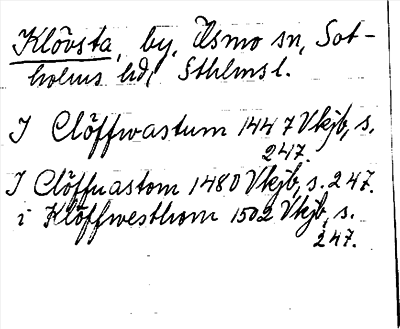 Klövsta, by, Ösmo sn, Sot-
holms hd, Sthlmsl.
I Clöffwastum 1447 Vkjb, s.
247.
I Clöffuastom 1480 Vkjb, s. 247.
i Klöffwesthom 1502 Vkjb, s.
247.